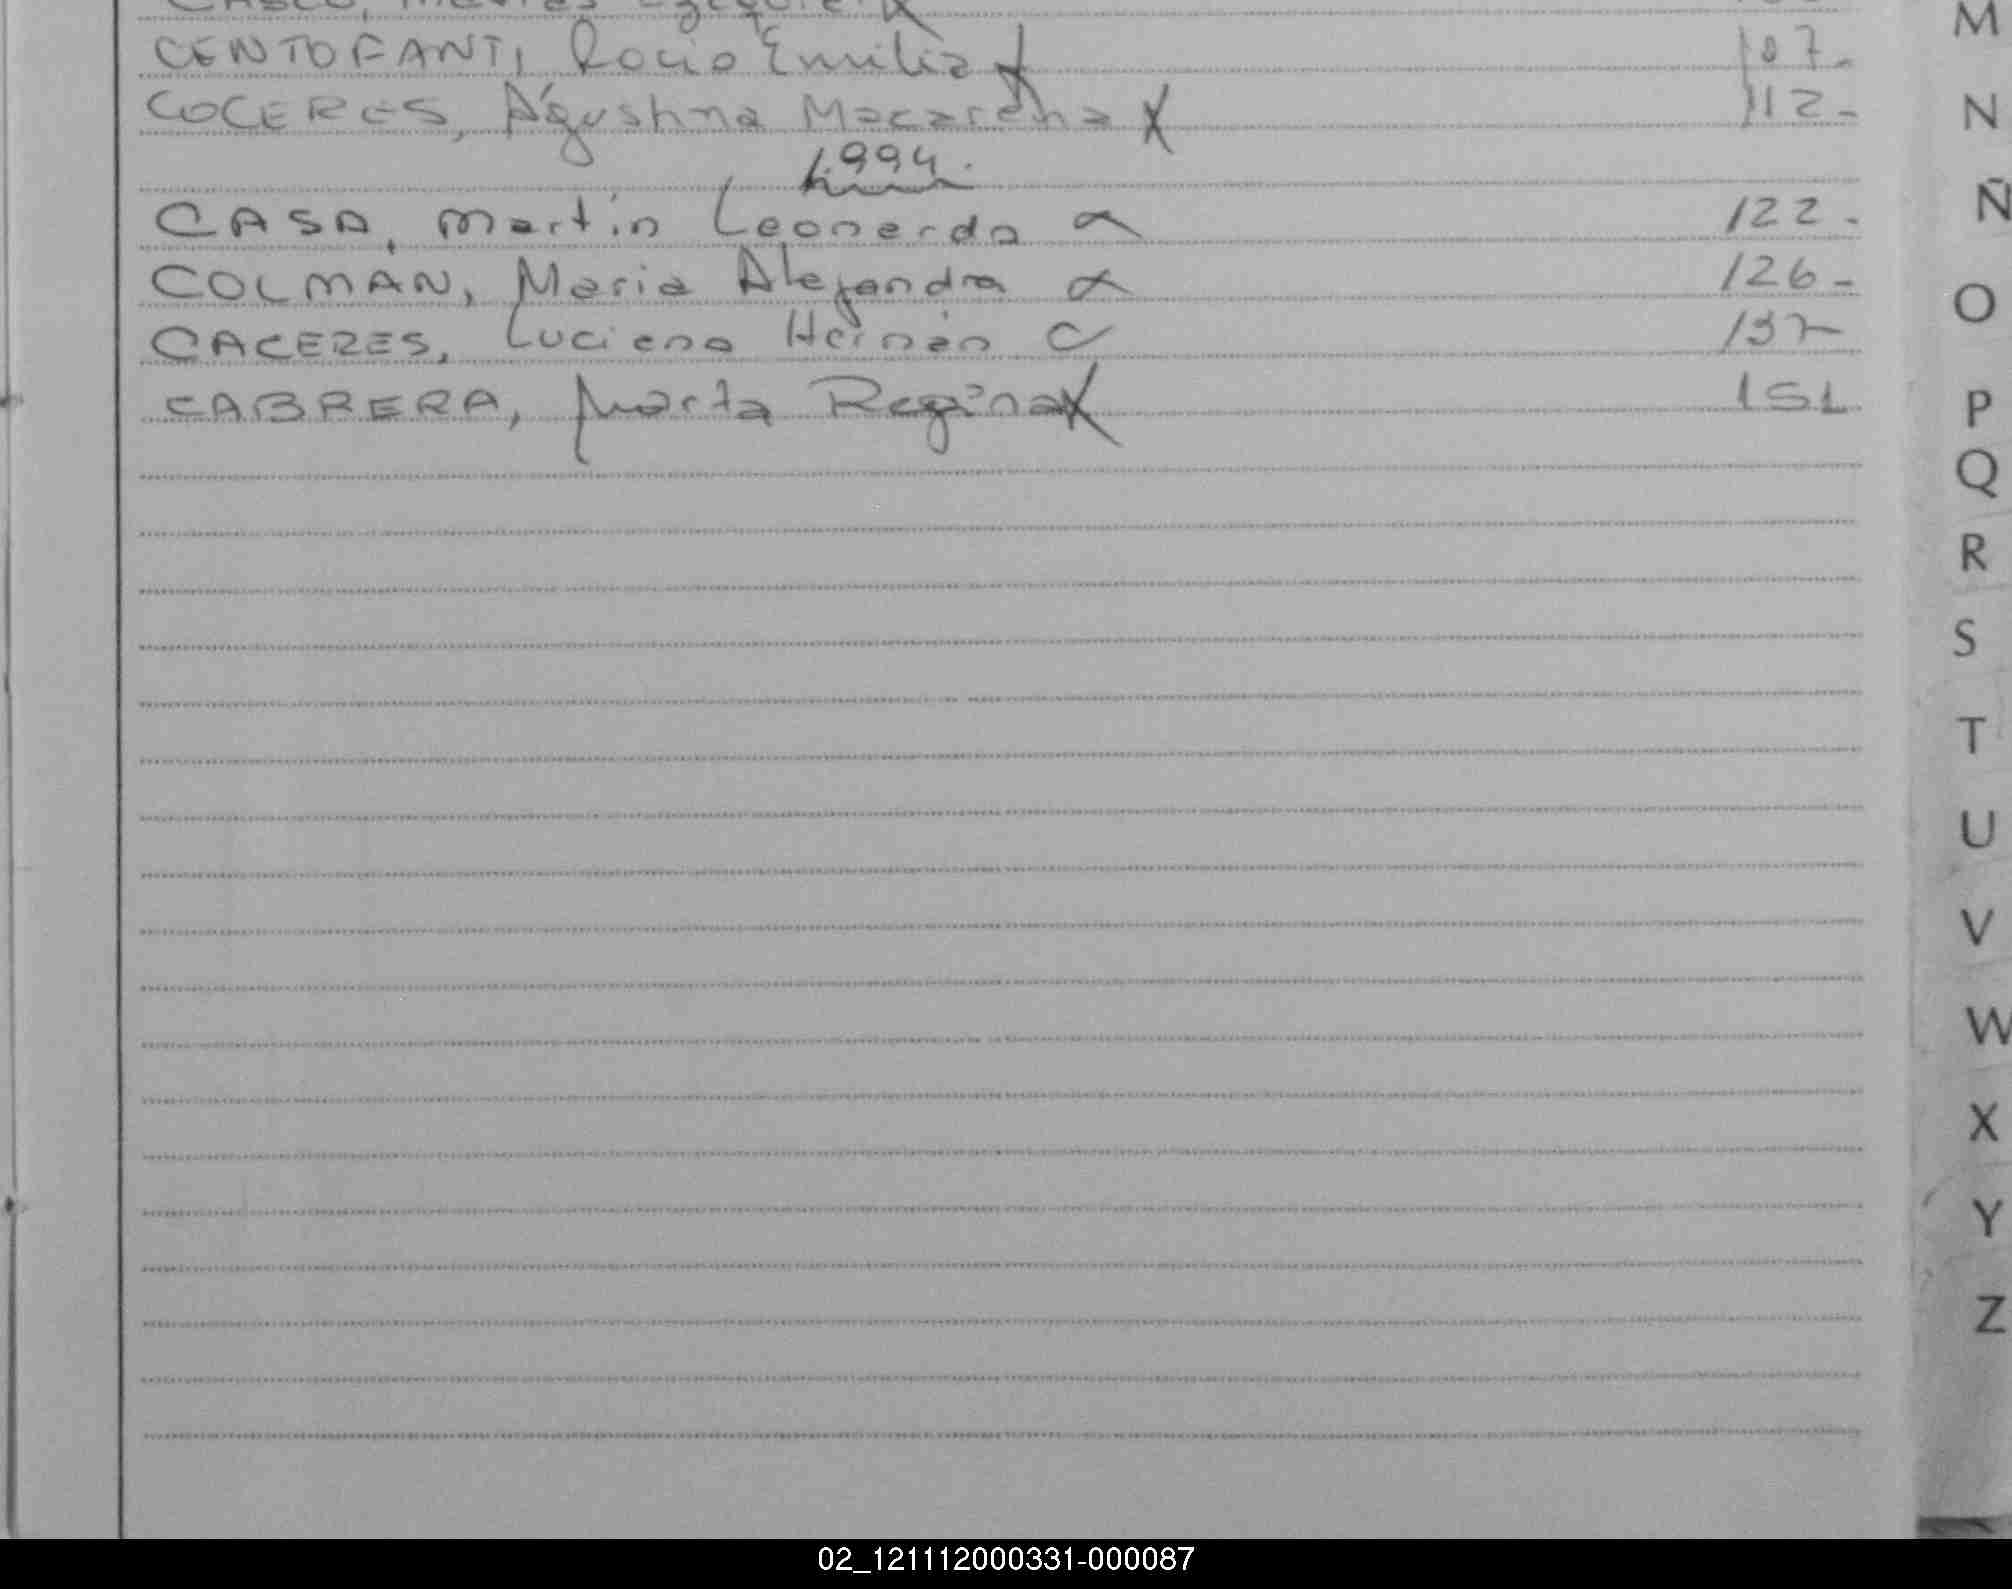 CASCO, Matías Ezequiel X
CENTOFANTI, Rocio Emilia X 107-
COCERES, Agustina Macarena X 112-
1994.
CASA, Martín Leonardo 122-
COLMAN, Maria Alejandra 126-
CACERES, Luciano Hernán 137-
CABRERA, Marta Regina X 151
M
N
Ñ
O
P
Q
R
S
T
U
V
W
X
Y
Z
02_121112000331-000087